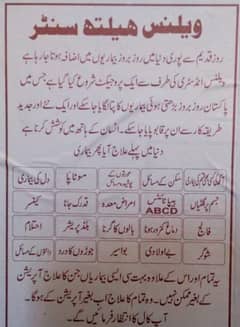 ویلنس ہیلتھ سنٹر
روز قدیم سے پوری دنیا میں روز بروز بیماریوں میں اضافہ ہوتا جا رہا ہے
ویلنس انڈسٹری کی طرف سے ایک پروجیکٹ شروع کیا گیا ہے جس میں
پاکستان روز بروز بڑھتی ہوئی بیماریوں کا پتا لگایا جا سکے اور ایک نئے اور جدید
طریقہ کار سے ان پر قابو پایا جا سکے۔ انسان کے ہاتھ میں کوشش کرنا ہے
دنیا میں پہلے علاج آیا پھر بیماری
سکن کے مسائل موٹاپا دل کی بیماری
جسم پر گلٹیاں ہیپاٹائٹس ABCD امراض معدہ قد رک جانا کینسر
فالج دماغ کمزور ہونا بالوں کا گرنا بلڈ پریشر احتلام
شوگر بے اولادی بواسیر جوڑوں کا درد دانتوں کے مسائل
یہ تمام اور اس کے علاوہ بہت سی ایسی بیماریاں جن کا علاج آپریشن
کے بغیر ممکن نہیں۔ وہ تمام کا علاج اب بغیر آپریشن کے ہوگا۔
ہم آپ کا انتظار فرمائیں گے۔